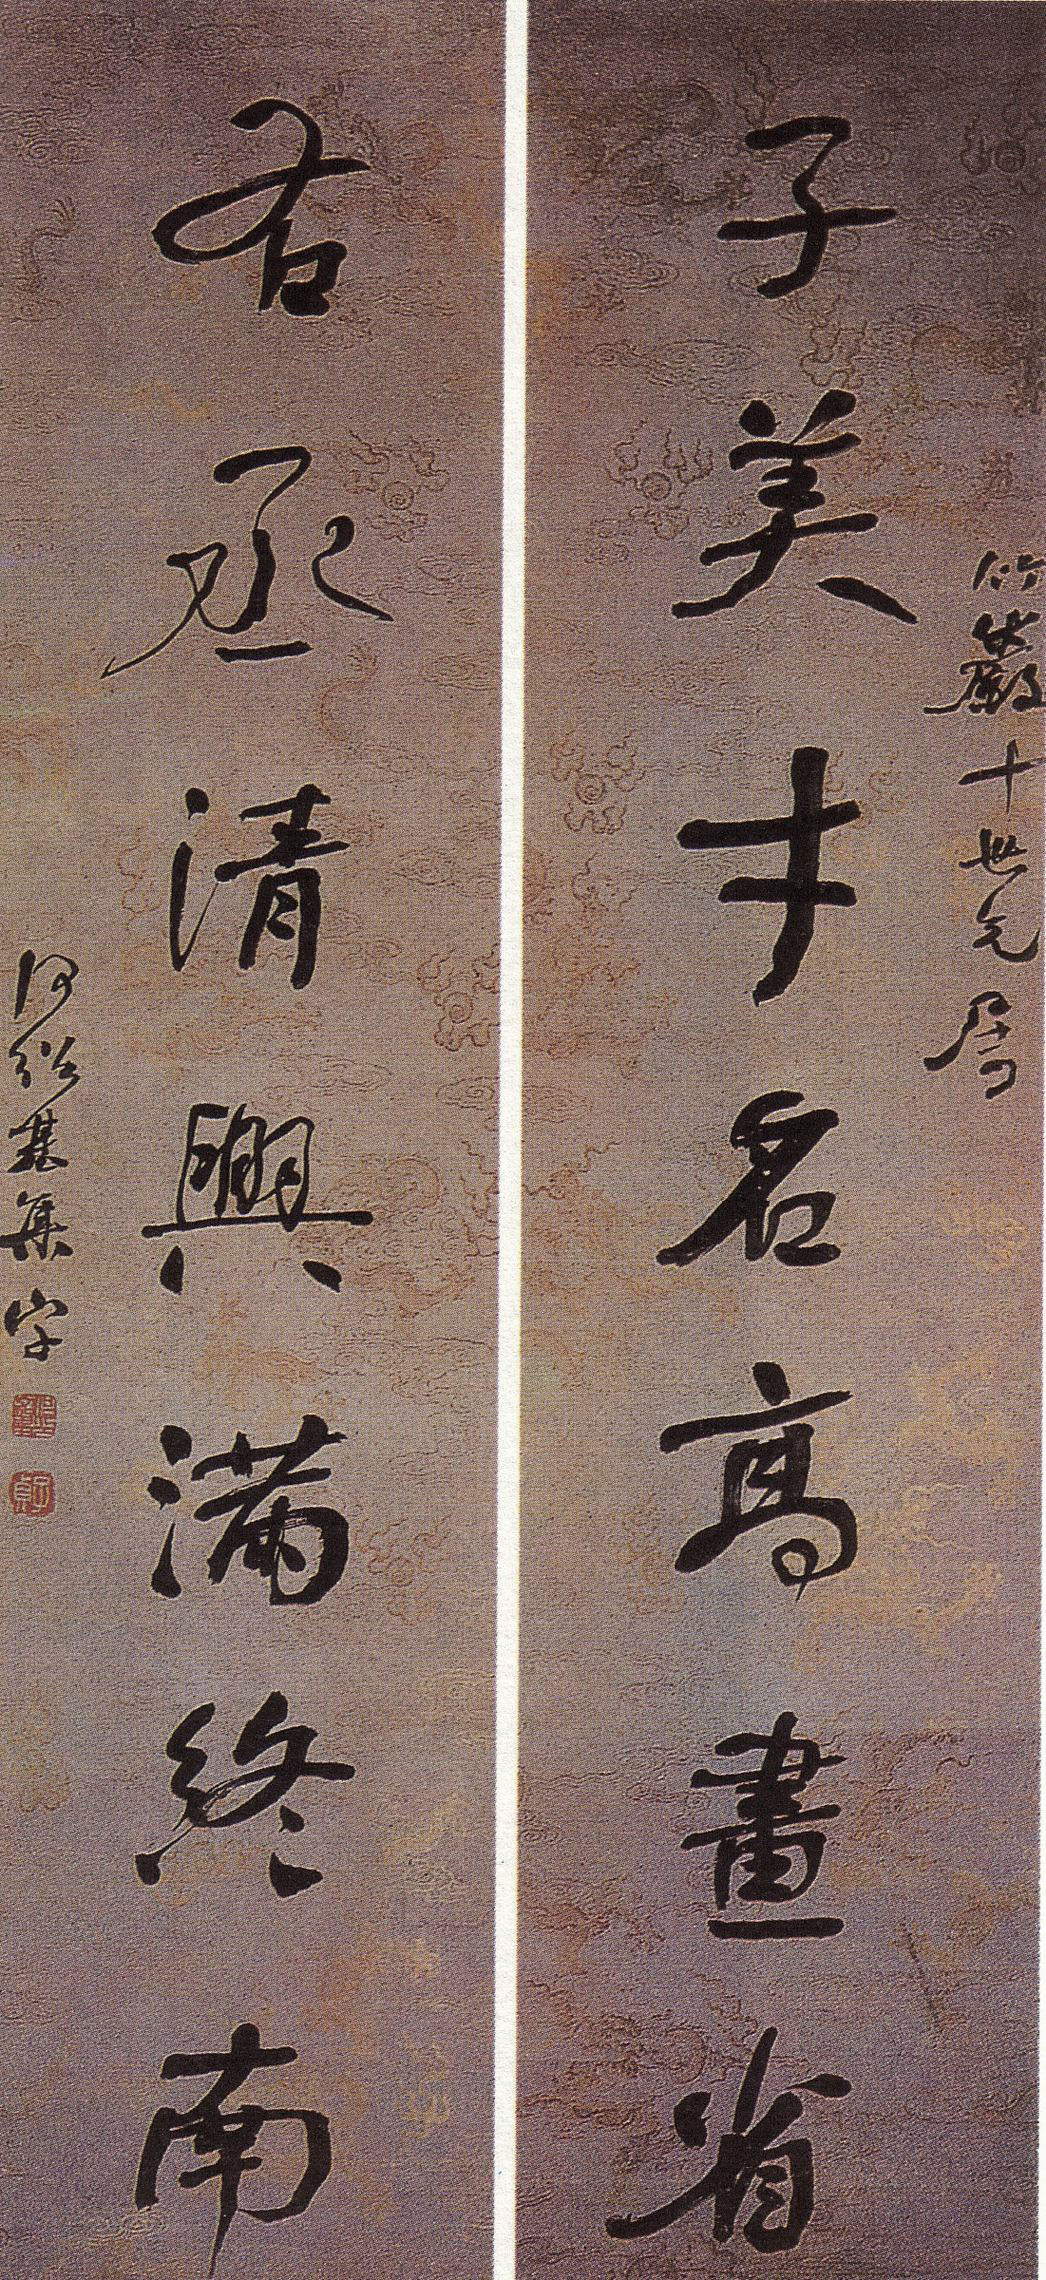 竹巖十世兄屬
子美才名高畫省
右丞清興滿終南
何紹基集字